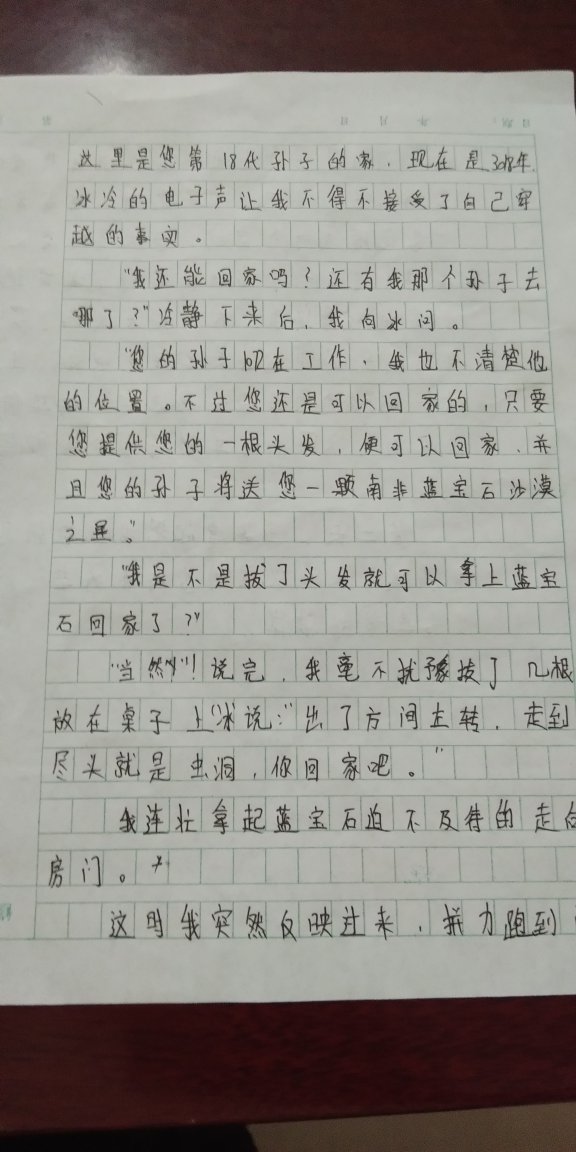 这里是您第18代孙子的家，现在是3018年.
冰冷的电子声让我不得不接受了自己穿
越的事实。
"我还能回家吗？还有我那个孙子去
哪了？"冷静下来后，我向冰问。
"您的孙子现在工作，我也不清楚他
的位置。不过您还是可以回家的，只要
您提供您的一根头发，便可以回家，并
且您的孙子将送您一颗南非蓝宝石沙漠
之星。"
"我是不是拔了头发就可以拿上蓝宝
石回家了？"
"当然"！说完，我毫不犹豫拔了几根
放在桌子上"冰说："出了方间左转，走到
尽头就是虫洞，你回家吧。"
我连忙拿起蓝宝石迫不及待的走向
房门。
这时我突然反映过来，拼力跑到